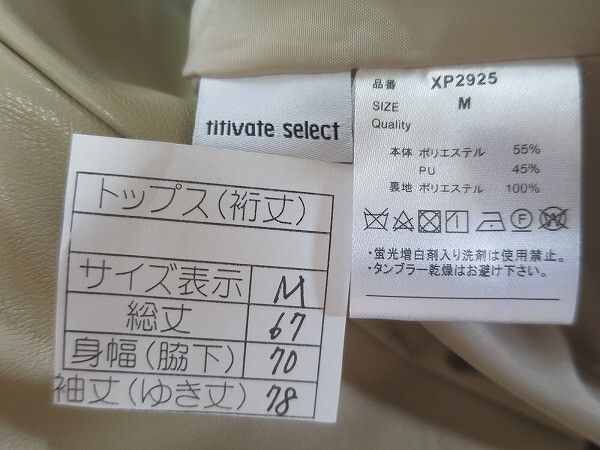 titivate select
品番 XP2925
SIZE M
Quality
本体 ポリエステル 55%
PU 45%
裏地 ポリエステル 100%
・蛍光増白剤入り洗剤は使用禁止。
・タンブラー乾燥はお避け下さい。
トップス(裄丈)
サイズ表示 M
総丈 67
身幅(脇下) 70
袖丈(ゆき丈) 78